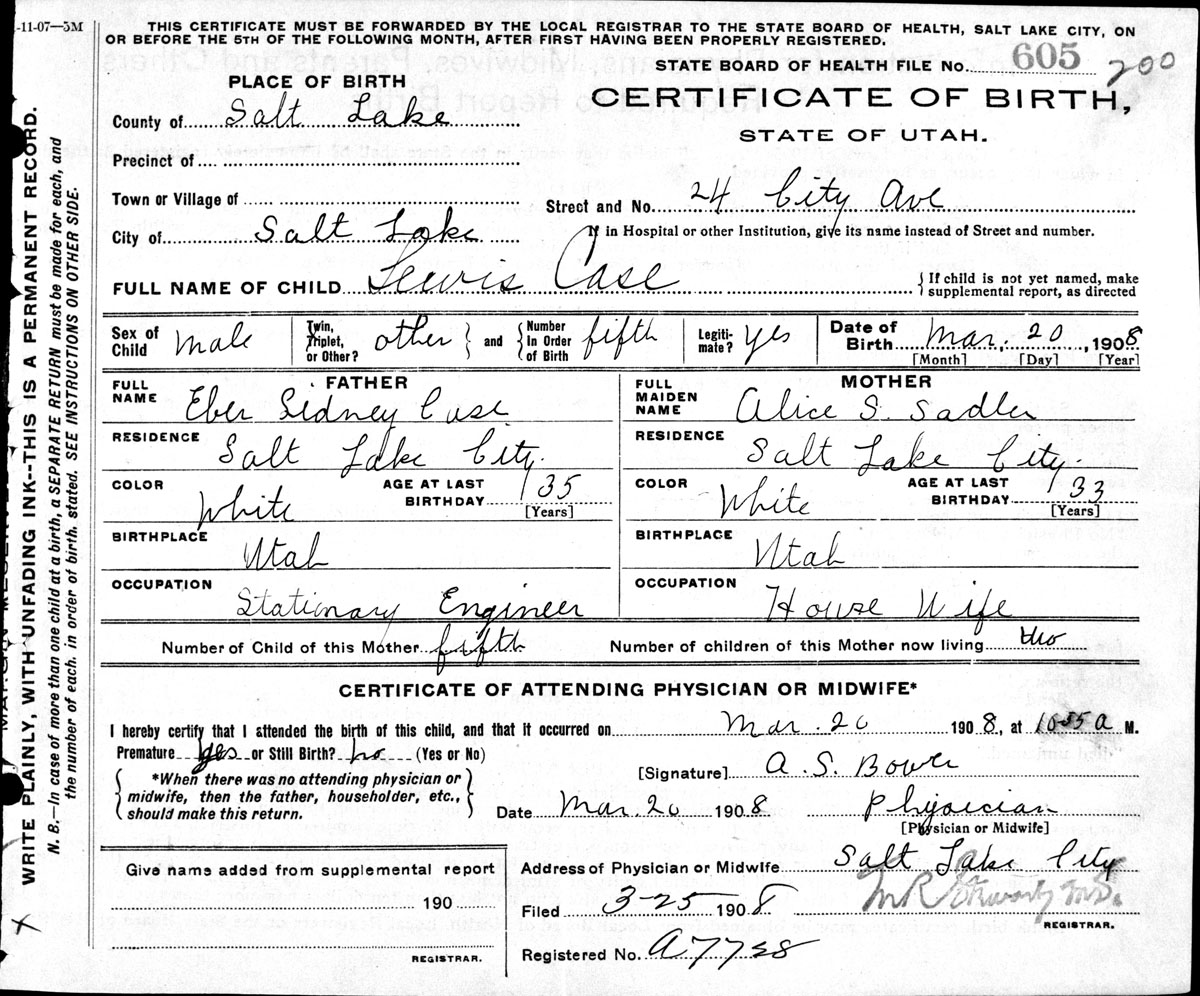 -11-07—5M
THIS CERTIFICATE MUST BE FORWARDED BY THE LOCAL REGISTRAR TO THE STATE BOARD OF HEALTH, SALT LAKE CITY, ON
OR BEFORE THE 5TH OF THE FOLLOWING MONTH, AFTER FIRST HAVING BEEN PROPERLY REGISTERED.
STATE BOARD OF HEALTH FILE No. 605 200
PLACE OF BIRTH
CERTIFICATE OF BIRTH,
STATE OF UTAH.
County of Salt Lake
Precinct of
Town or Village of
Street and No. 24 City Ave
City of Salt Lake
If in Hospital or other Institution, give its name instead of Street and number.
FULL NAME OF CHILD Lewis Case
{ If child is not yet named, make
supplemental report, as directed
Sex of Child male
Twin, Triplet, or Other? other } and { Number In Order of Birth fifth
Legitimate? yes
Date of Birth Mar. 20, 1908
[Month] [Day] [Year]
FATHER
FULL NAME Eber Sidney Case
MOTHER
FULL MAIDEN NAME Alice S. Sadler
RESIDENCE Salt Lake City.
RESIDENCE Salt Lake City.
COLOR White AGE AT LAST BIRTHDAY 35 [Years]
COLOR White AGE AT LAST BIRTHDAY 33 [Years]
BIRTHPLACE Utah
BIRTHPLACE Utah
OCCUPATION Stationary Engineer
OCCUPATION House Wife
Number of Child of this Mother fifth Number of children of this Mother now living two
CERTIFICATE OF ATTENDING PHYSICIAN OR MIDWIFE*
I hereby certify that I attended the birth of this child, and that it occurred on Mar. 20 1908, at 1055 a M.
Premature yes or Still Birth? no (Yes or No)
{ *When there was no attending physician or
midwife, then the father, householder, etc.,
should make this return. }
[Signature] A. S. Bower
Date Mar. 20 1908 Physician
[Physician or Midwife]
Give name added from supplemental report
190
REGISTRAR.
Address of Physician or Midwife Salt Lake City
Filed 3-25 1908
REGISTRAR.
Registered No. A7728
WRITE PLAINLY, WITH UNFADING INK--THIS IS A PERMANENT RECORD.
N. B.—In case of more than one child at a birth, a SEPARATE RETURN must be made for each, and
the number of each, in order of birth, stated. SEE INSTRUCTIONS ON OTHER SIDE.
X